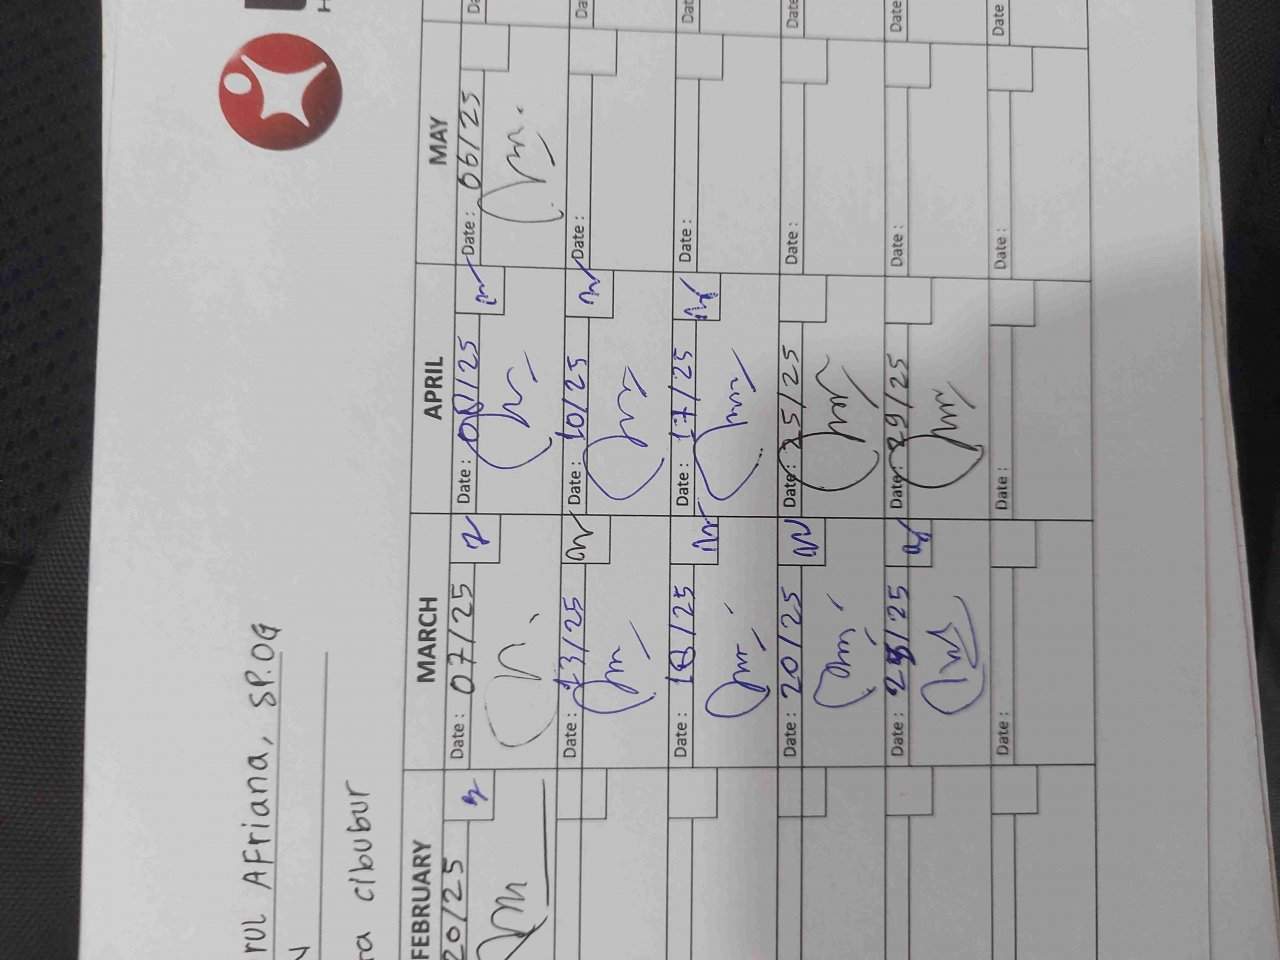 rul Afriana, SP.OG
ra cibubur
FEBRUARY MARCH APRIL MAY
20/25 Date : 07/25 Date : 08/25 Date : 06/25
Date : 13/25 Date : 10/25 Date :
Date : 18/25 Date : 17/25 Date :
Date : 20/25 Date : 25/25 Date :
Date : 25 Date : 29/25 Date :
Date : Date : Date :